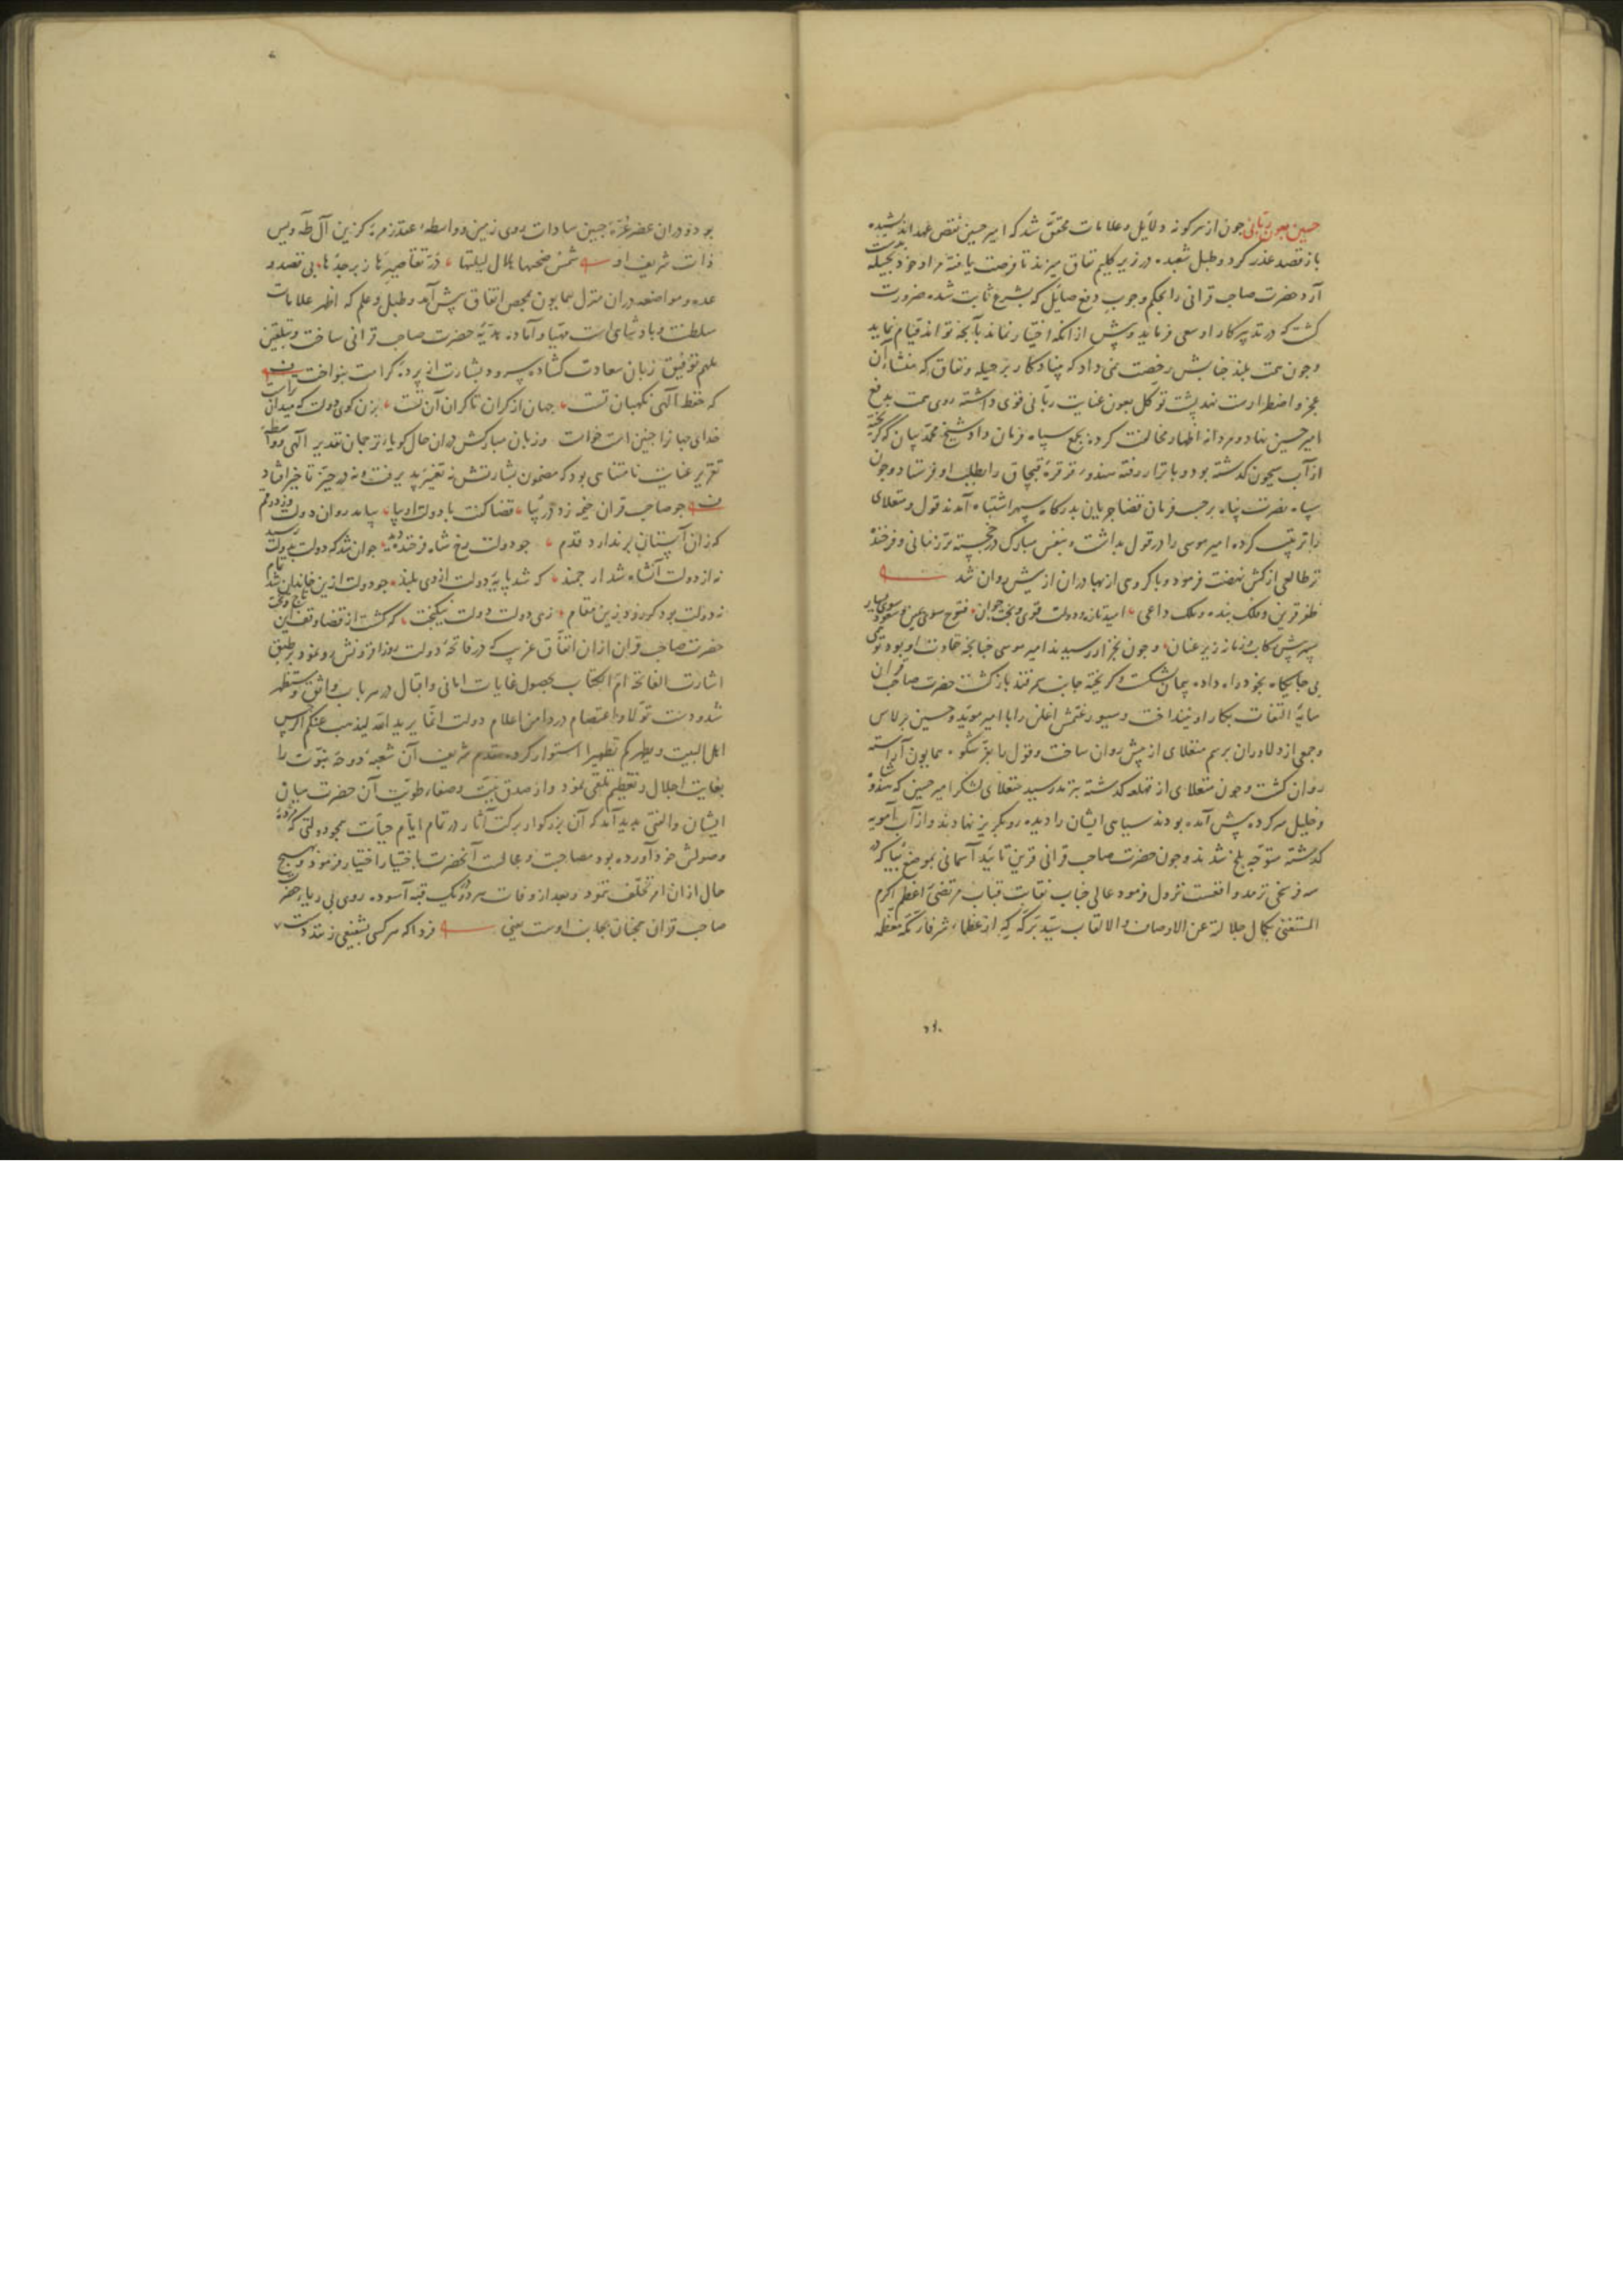 حسین بعون ربّانی چون از هر کونه دلایل و علامات محقق شد که امیر حسین نقض عهد اندیشیده
باز قصد غدر کرد و طبل شعبده در زیر کلیم نفاق میزند تا فرصت یافته مراد خود بحیله
آرد حضرت صاحب قرانی را بحکم وجوب دفع صایل که بشرع ثابت شده ضرورت
کشت که در تدبیر کار او سعی فرماید و پیش از انکه اختیار نماند بآنچه تواند قیام نماید
و چون همت بلند جنابش رخصت نمی داد که بنیاد کار بر حیله و نفاق که منشاء آن
عجز و اضطرارست نهد پشت توکل بعون عنایت ربّانی قوی داشته روی همت بدفع
امیر حسین نهاد و مردانه اظهار مخالفت کرده بجمع سپاه فرمان داد و شیخ محمد بیان که کریخته
از آب سیحون کذشته بود و باترار رفته هندو قرقره قبچاق را بطلب او فرستاد و چون
سپاه نصرت پناه بر حسب فرمان قضا جریان بدرکاه سپهر اشتباه آمدند قول و منقلای
را ترتیب کرده امیر موسی را در قول بداشت و بنفس مبارک در خجسته تر زمانی و فرخنده
تر طالعی از کش نهضت فرمود و با کروهی از بهادران از پیش روان شد
ظفر قرین و فلک بنده و ملک داعی امید تازه و دولت قوی و بخت جوان فتوح سوی یمین و سعود سوی یسار
سپهر پیش رکاب و زمانه زیر عنان و چون بخزار رسیدند امیر موسی چنانچه عادت او بود توهمی
بی جایکاه بخود راه داده پیمان بشکست و کریخته جانب سمرقند بازکشت حضرت صاحب قران
سایه التفات بکار او نینداخت و سیورغتمش اغلن را با امیر موید و حسین برلاس
و جمعی از دلاوران برسم منقلای از پیش روان ساخت و قول را بفرّ شکوه همایون آراسته
روان کشت و چون منقلای از قهلغه کذشته بترمد رسید منقلای لشکر امیر حسین که هندو شاه
و خلیل سرکرده پیش آمده بودند سیاهی ایشان را دیده رو بکریز نهادند و از آب آمویه
کذشته متوجه بلخ شدند و چون حضرت صاحب قرانی قرین تایید آسمانی بموضع بیا که در
سه فرسخی ترمد واقعست نزول فرمود عالی جناب نقابت قباب مرتضی اعظم اکرم
المستغنی بکمال جلالته عن الاوصاف و الالقاب سیّد برکه که از عظماء شرفاء مکه معظمه
بود و دران عصر غرّه جبین سادات روی زمین و واسطه عقد زمره کزین آل طه و یس
ذات شریف او شمس ضحیها هلال لیلتها درّ تقاصیرها زبرجدها بی قصد و
عده و مواضعه دران منزل همایون بمحض اتفاق پیش آمد و طبل و علم که اظهر علامات
سلطنت و پادشاهی است مهیّا و آماده هدیه حضرت صاحب قرانی ساخت و بتلقین
ملهم توفیق زبان سعادت کشاده سرود بشارت از پرده کرامت بنواخت
که حفظ الهی نکهبان تست جهان از کران تا کران آن تست بزن کوی دولت که میدان تراست
خدای جهانرا چنین است خواست و زبان مبارکش دران حال کویا ترجمان تقدیر الهی و واسطه
تقریر عنایت نامتناهی بود که مضمون بشارتش نه تغییر پذیرفت و نه در حیّز تاخیر افتاد
چو صاحب قران خیمه زد در بیا قضا کفت با دولت او بیا بیامد روان دولت و زد رقم
که زان آستان بر ندارد قدم چو دولت رخ شاه فرخنده دید جوان شد که دولت بدولت رسید
نه از دولت آنشاه شد ارجمند که شد پایه دولت از وی بلند چو دولت ازین خاندان شد تمام
نه دولت بود کو رود زین مقام زهی دولت دولت نیکبخت که کشت از قضا وقف این تاج و تخت
حضرت صاحب قران ازان اتفاق غریب که در فاتحه دولت روز افزونش رو نمود بر طبق
اشارت الفاتحة امّ الکتاب بحصول غایات امانی و اقبال در هر باب واثق و مستظهر
شد و دست تولا و اعتصام در دامن اعلام دولت انّما یرید الله لیذهب عنکم الرجس
اهل البیت و یطهرکم تطهیرا استوار کرده مقدم شریف آن شعبه دوحه نبوّت را
بغایت اجلال و تعظیم تلقی نمود و از صدق نیّت و صفاء طویّت آن حضرت میان
ایشان والفتی پدید آمد که آن بزرکوار برکت آثار در تمام ایام حیات بجود دولتی که مژده
وصولش خود آورده بود مصاحبت و مجالست آنحضرت باختیار اختیار فرمود و بهیچ
حال ازان امر تخلّف ننمود و بعد از وفات هر دو در یک قبه آسوده روی بی ریا حضرت
صاحب قران همچنان بجانب اوست یعنی فردا که هر کسی بشفیعی زنند دست